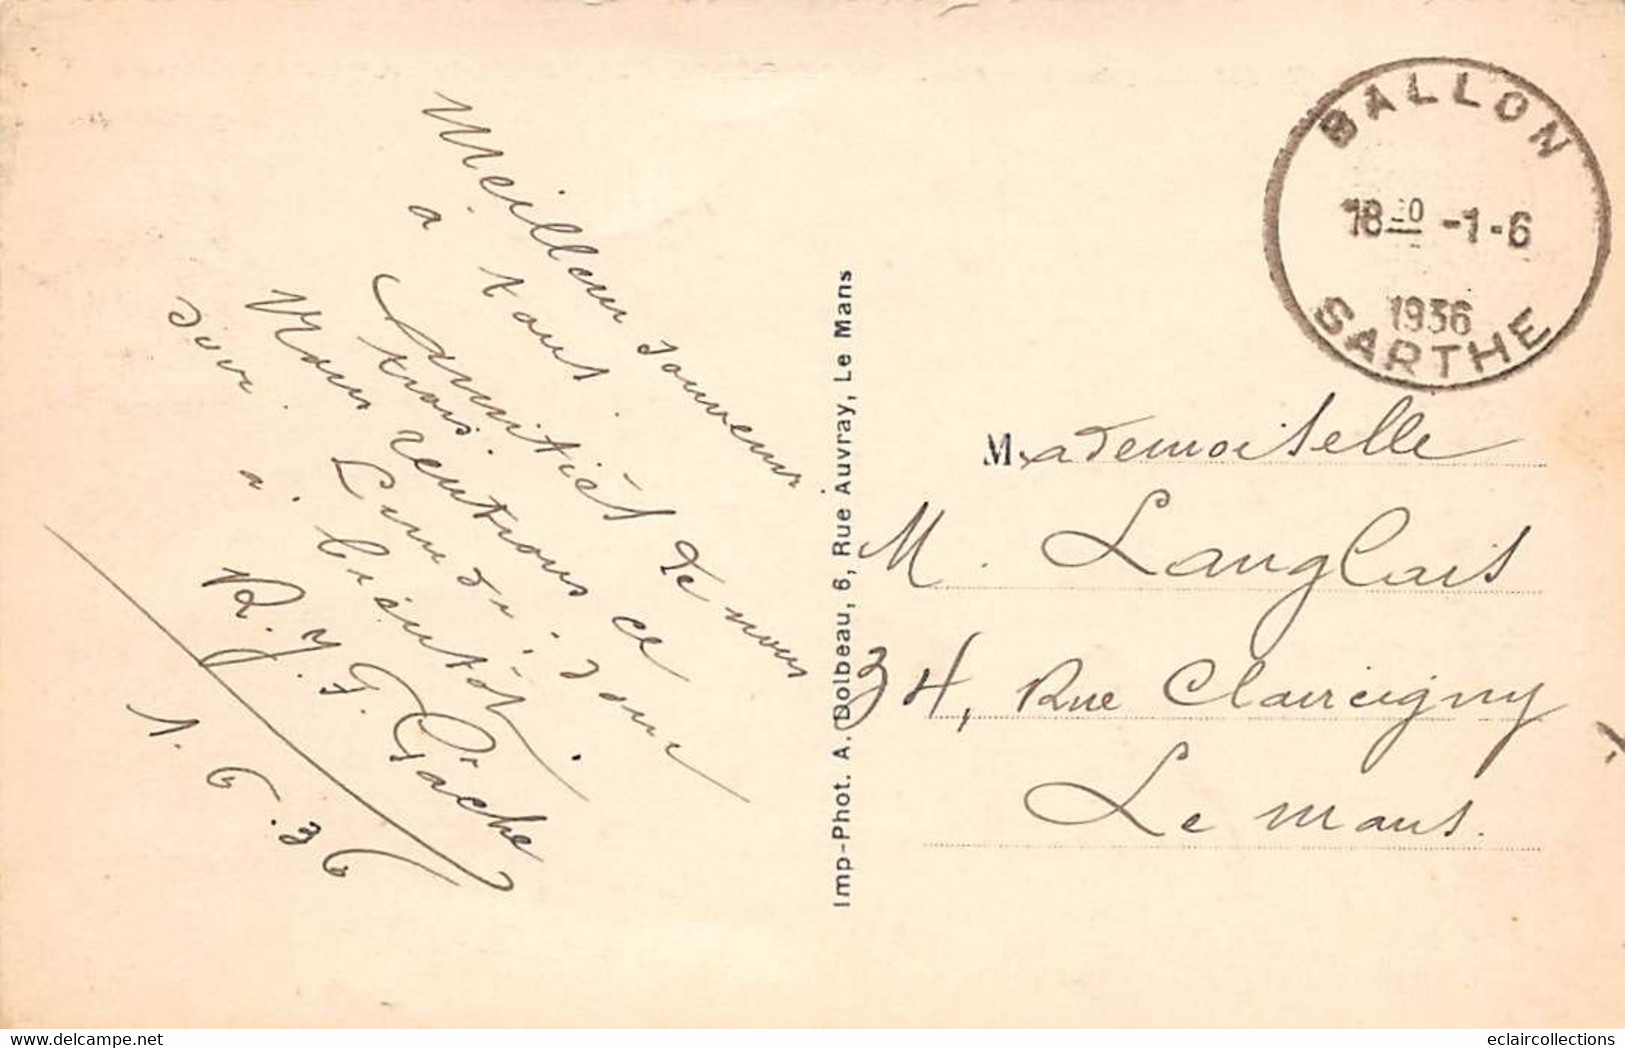 Meilleur souvenir
à tous.
Amitiés de nous
trois.
Nous rentrons ce
soir. Lundi. donc
à bientôt.
R. J. F. Gâche
1.6.36
Imp-Phot. A. Dolbeau, 6, Rue Auvray, Le Mans
BALLON
18 -1-6
1936
SARTHE
Mademoiselle
M. Langlais
34, Rue Claircigny
Le Mans.
eclaircollections
delcampe.net